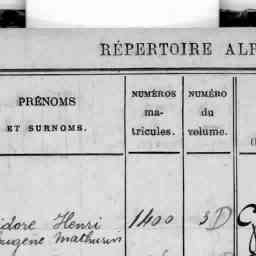 RÉPERTOIRE ALP
PRÉNOMS
ET SURNOMS.
NUMÉROS
ma-
tricules.
NUMÉRO
du
volume.
idore Henri 1400 3 D
Eugène Mathurin